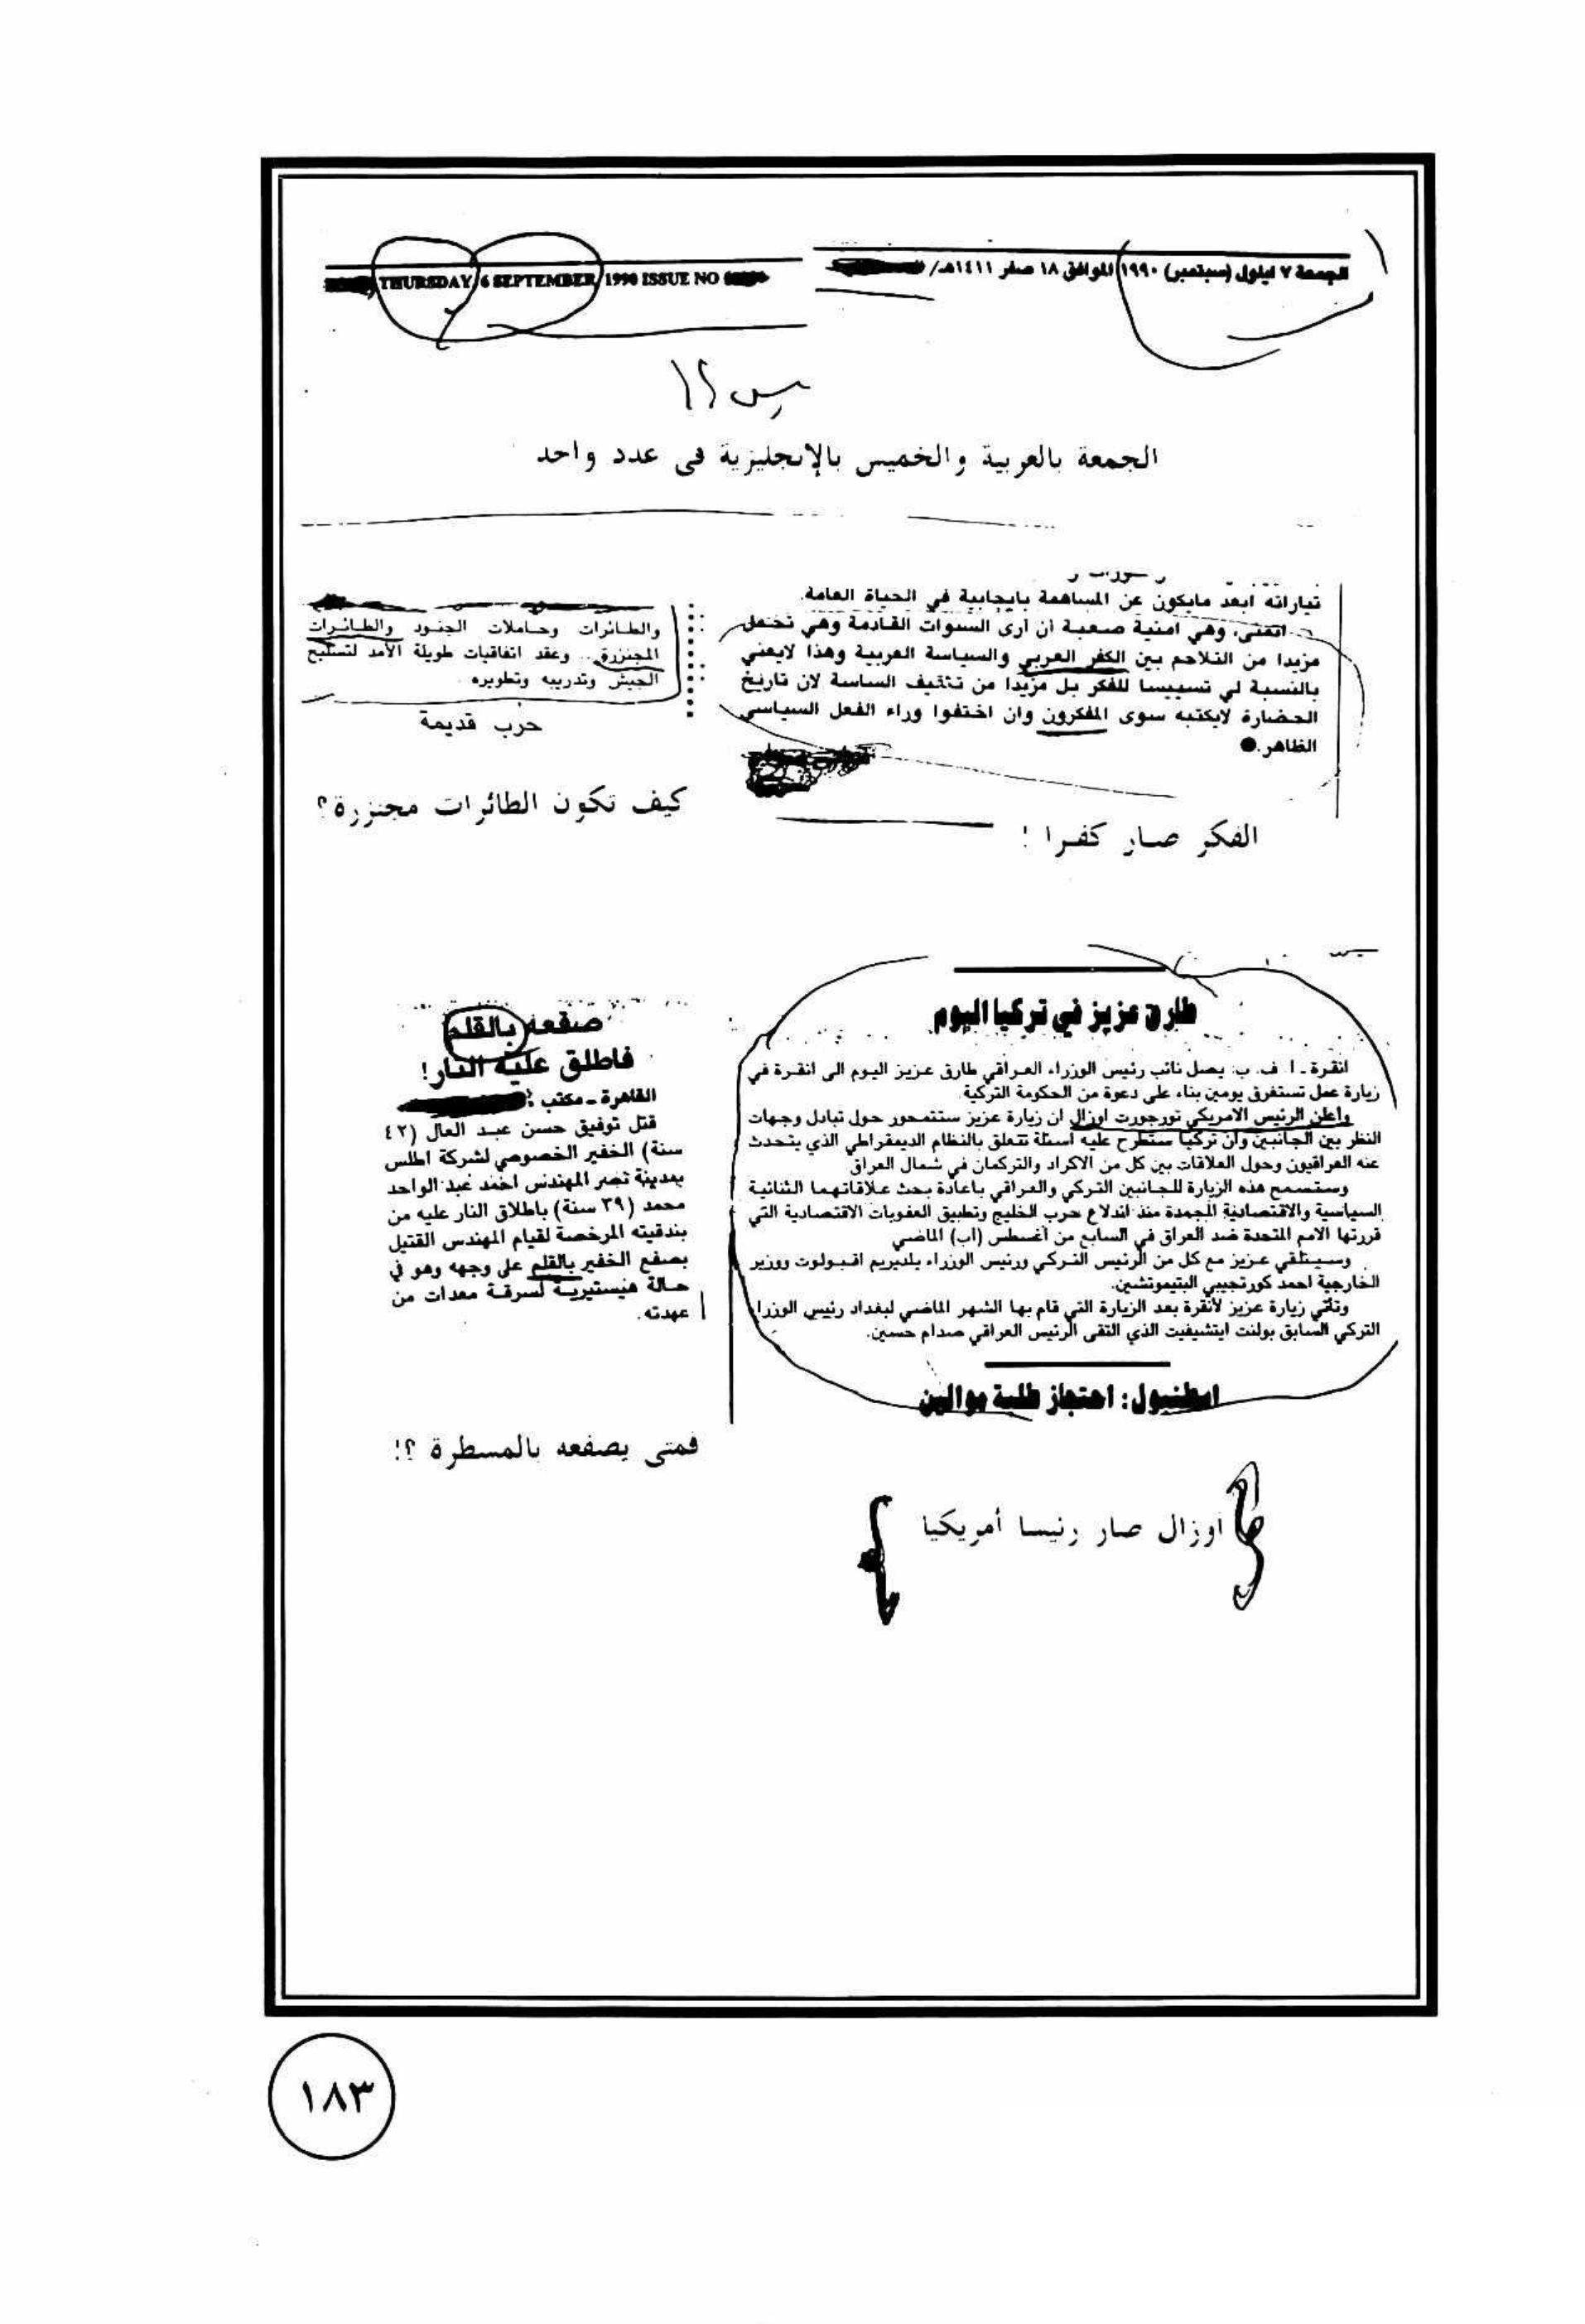 الجمعة ٧ ايلول (سبتمبر) ١٩٩٠ الموافق ١٨ صفر ١٤١١هـ/
THURSDAY 6 SEPTEMBER 1990 ISSUE NO
الجمعة بالعربية والخميس بالإنجليزية في عدد واحد
تياراته ابعد مايكون عن المساهمة بايجابية في الحياة العامة.
اتمنى، وهي امنية صعبة أن أرى السنوات القادمة وهي تحمل
مزيدا من التلاحم بين الكفر العربي والسياسة العربية وهذا لايعني
بالنسبة لي تسييسا للفكر بل مزيدا من تثقيف السياسة لان تاريخ
الحضارة لايكتبه سوى المفكرون وان اختفوا وراء الفعل السياسي
الظاهر.
الفكر صار كفرا !
والطائرات وحاملات الجنود والطائرات
المجنزرة.. وعقد اتفاقيات طويلة الأمد لتسليح
الجيش وتدريبه وتطويره.
حرب قديمة
كيف تكون الطائرات مجنزرة؟
طارق عزيز في تركيا اليوم
انقرة ـ ا. ف. ب: يصل نائب رئيس الوزراء العراقي طارق عزيز اليوم الى انقرة في
زيارة عمل تستغرق يومين بناء على دعوة من الحكومة التركية.
واعلن الرئيس الامريكي تورجورت اوزال ان زيارة عزيز ستتمحور حول تبادل وجهات
النظر بين الجانبين وان تركيا ستطرح عليه اسئلة تتعلق بالنظام الديمقراطي الذي يتحدث
عنه العراقيون وحول العلاقات بين كل من الاكراد والتركمان في شمال العراق
وستسمح هذه الزيارة للجانبين التركي والعراقي باعادة بحث علاقاتهما الثنائية
السياسية والاقتصادية المجمدة منذ اندلاع حرب الخليج وتطبيق العقوبات الاقتصادية التي
قررتها الامم المتحدة ضد العراق في السابع من أغسطس (اب) الماضي
وسيلتقي عزيز مع كل من الرئيس التركي ورئيس الوزراء يلديريم اقبولوت ووزير
الخارجية احمد كورتجيبي البتيموتشين.
وتأتي زيارة عزيز لأنقرة بعد الزيارة التي قام بها الشهر الماضي لبغداد رئيس الوزراء
التركي السابق بولنت ايتشيفيت الذي التقى الرئيس العراقي صدام حسين.
اسطنبول: احتجاز طلبة موالين
اوزال صار رئيسا أمريكيا
صفعه بالقلم
فاطلق عليه النار!
القاهرة ـ مكتب
قتل توفيق حسن عبد العال (٤٢
سنة) الخفير الخصوصي لشركة اطلس
بمدينة نصر المهندس احمد عبد الواحد
محمد (٣٩ سنة) باطلاق النار عليه من
بندقيته المرخصة لقيام المهندس القتيل
بصفع الخفير بالقلم على وجهه وهو في
حالة هيستيرية لسرقة معدات من
عهدته.
فمتى يصفعه بالمسطرة ؟!
١٨٣